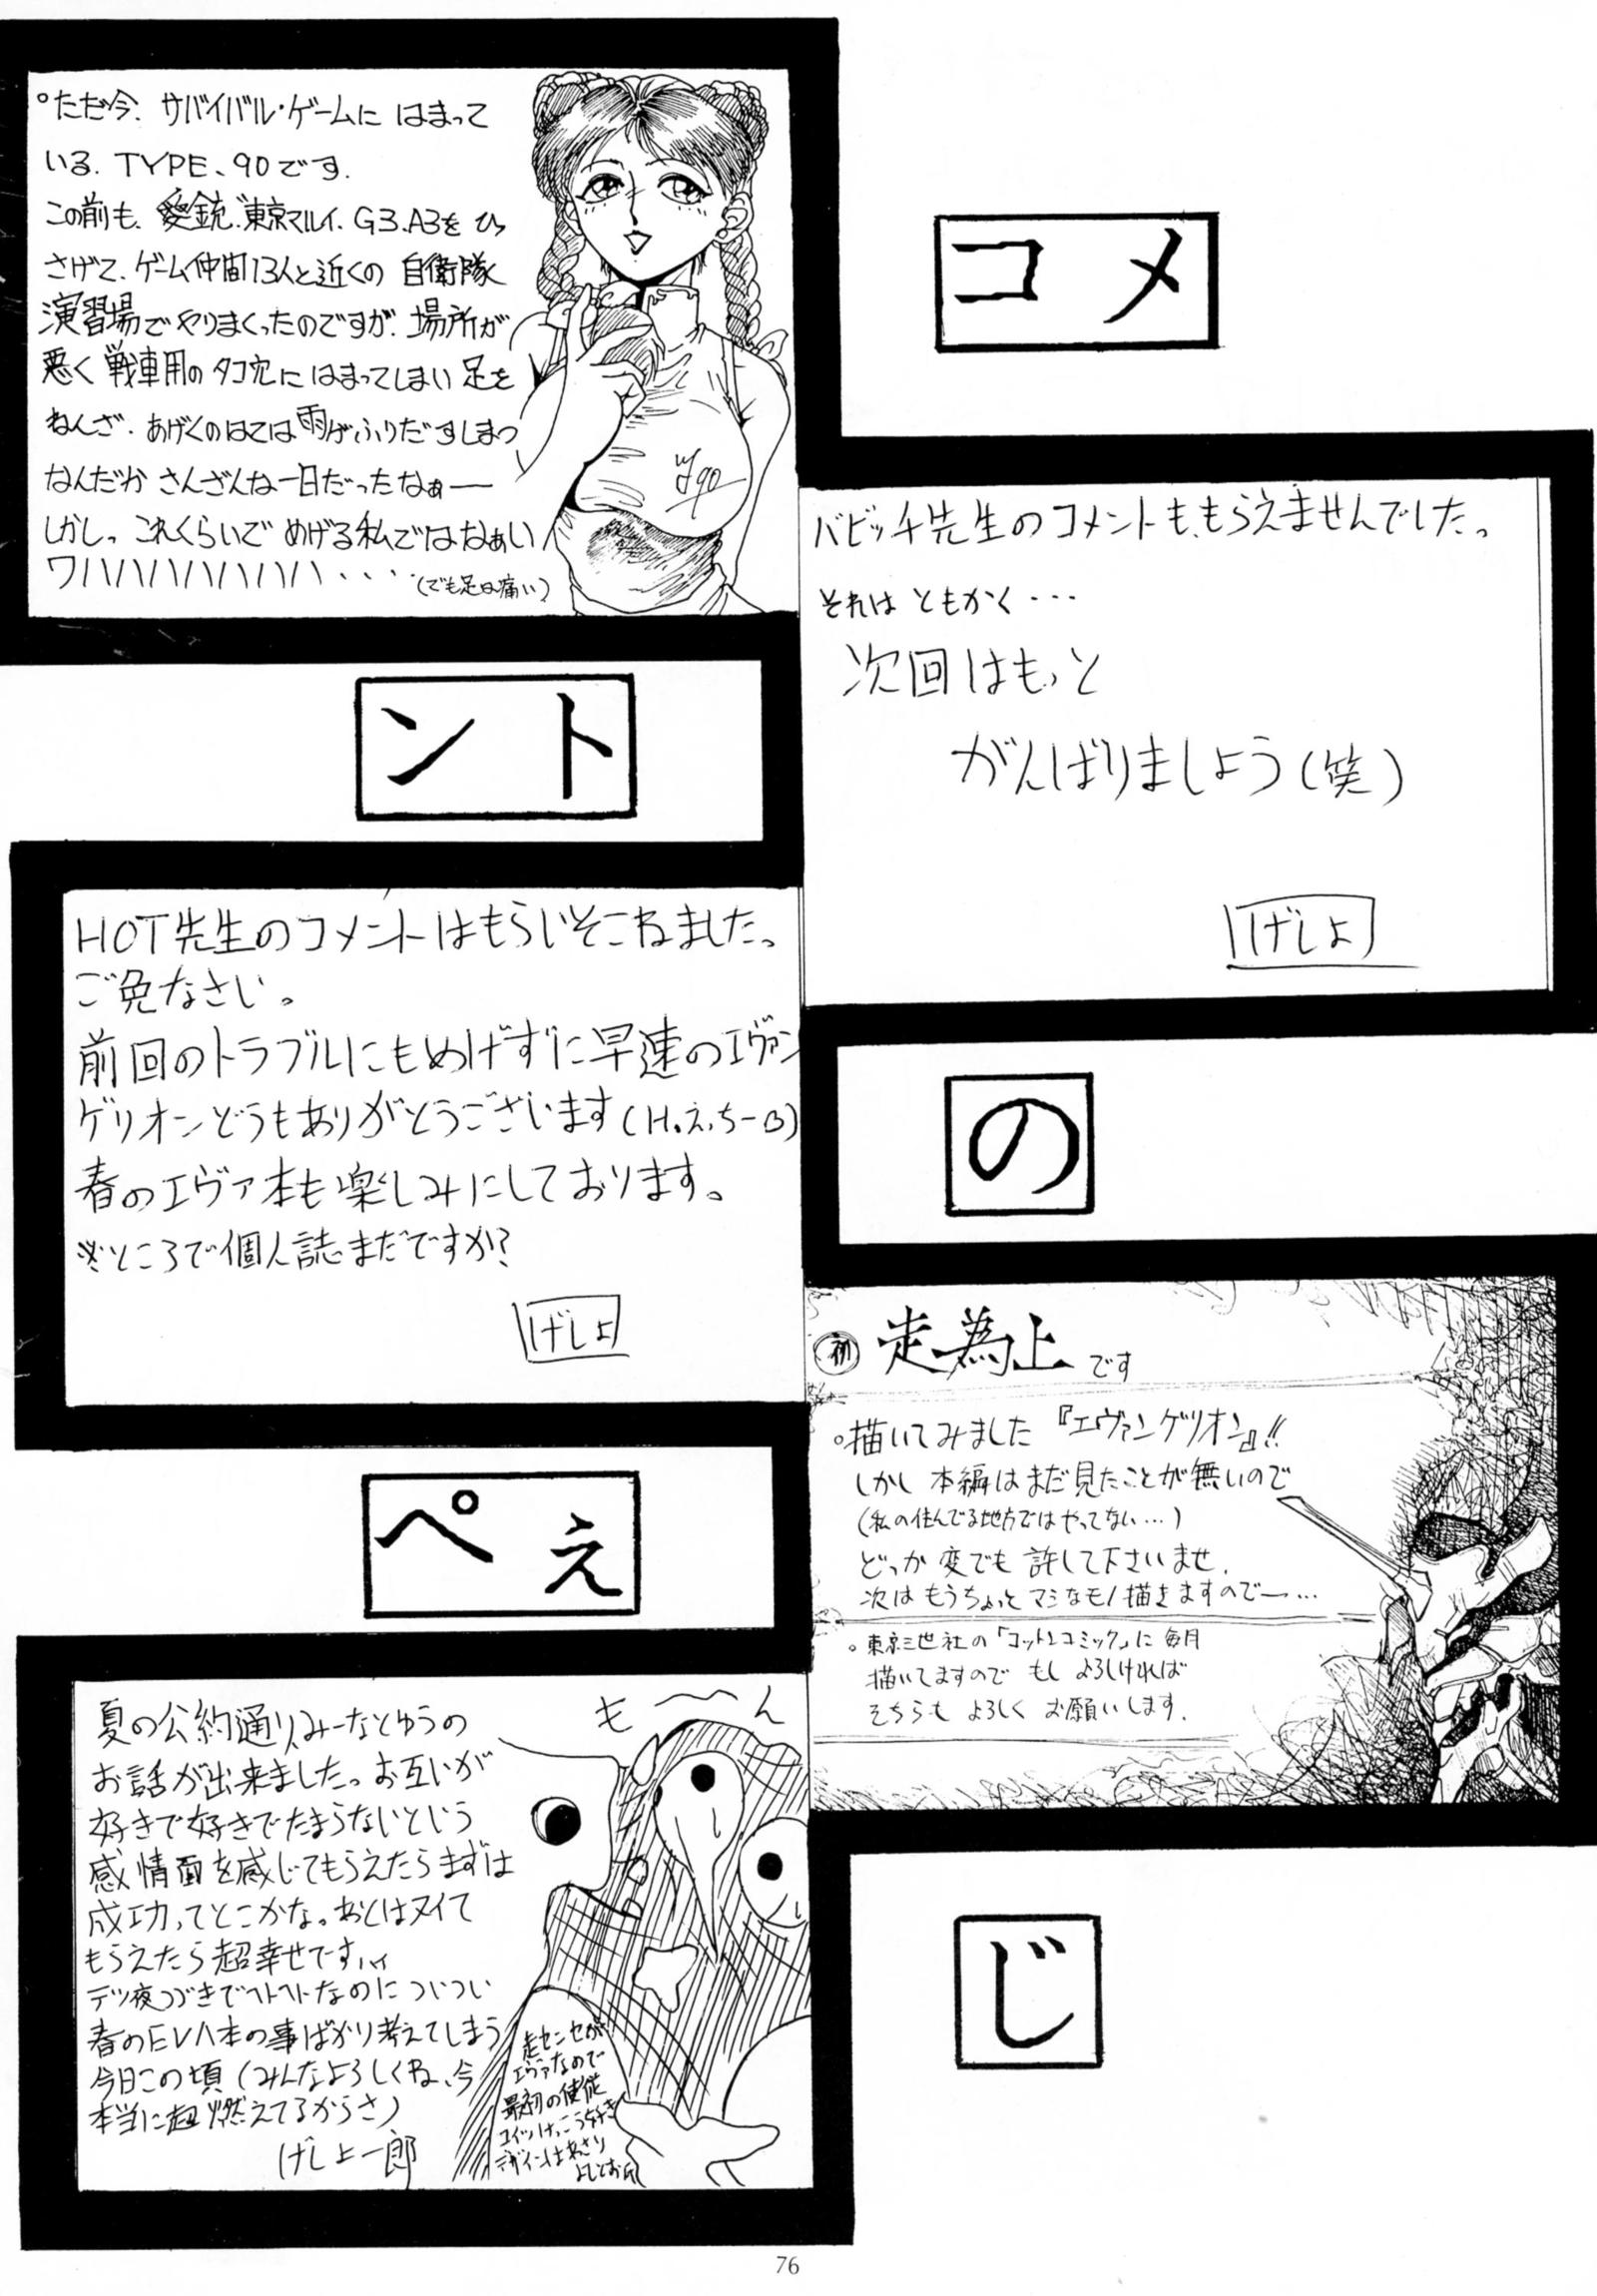 コメ
ント
の
ぺぇ
じ
°ただ今、サバイバル・ゲームに はまって
いる、TYPE、90です。
この前も、愛銃、東京マルイ、G3、A3を ひっ
さげて、ゲーム仲間13人と近くの 自衛隊
演習場でやりまくったのですが、場所が
悪く 戦車用のタコ穴にはまってしまい 足を
ねんざ、あげくのはては雨がふりだすしまつ
なんだか さんざんな一日だったなぁー
しかし、これくらいで めげる私ではなぁい
ワハハハハハハハハハ・・・・(でも足は痛い)
バビッチ先生のコメントももらえませんでした。
それは ともかく・・・
次回はもっと
がんばりましょう(笑)
げしょ
HOT先生のコメントはもらいそこねました。
ご免なさい。
前回のトラブルにもめげずに早速のエヴァン
ゲリオンどうもありがとうございます
春のエヴァ本も楽しみにしております。
※ところで個人誌まだですか?
げしょ
初 走為上です
°描いてみました『エヴァンゲリオン』!!
しかし 本編はまだ見たことが無いので
(私の住んでる地方ではやってない…)
どっか 変でも 許して下さいませ、
次は もうちょっと マシなモノ描きますのでー…
°東京三世社の「コットンコミック」に 毎月
描いてますので もし よろしければ
そちらも よろしく お願いします。
夏の公約通りみーなとゆうの
お話が出来ました。お互いが
好きで好きでたまらないという
感情面を感じてもらえたらまずは
成功ってとこかな。あとはヌイて
もらえたら超幸せですハイ
テツ夜つづきでヘトヘトなのについつい
春のEVA本の事ばかり考えてしまう
今日この頃(みんなよろしくね、今
本当に超燃えてるからさ)
げしょ一郎
も〜ん
走センセが
エヴァなので
最初の使徒
コイツけっこう好き
デザインはあさり
よしとお氏
76